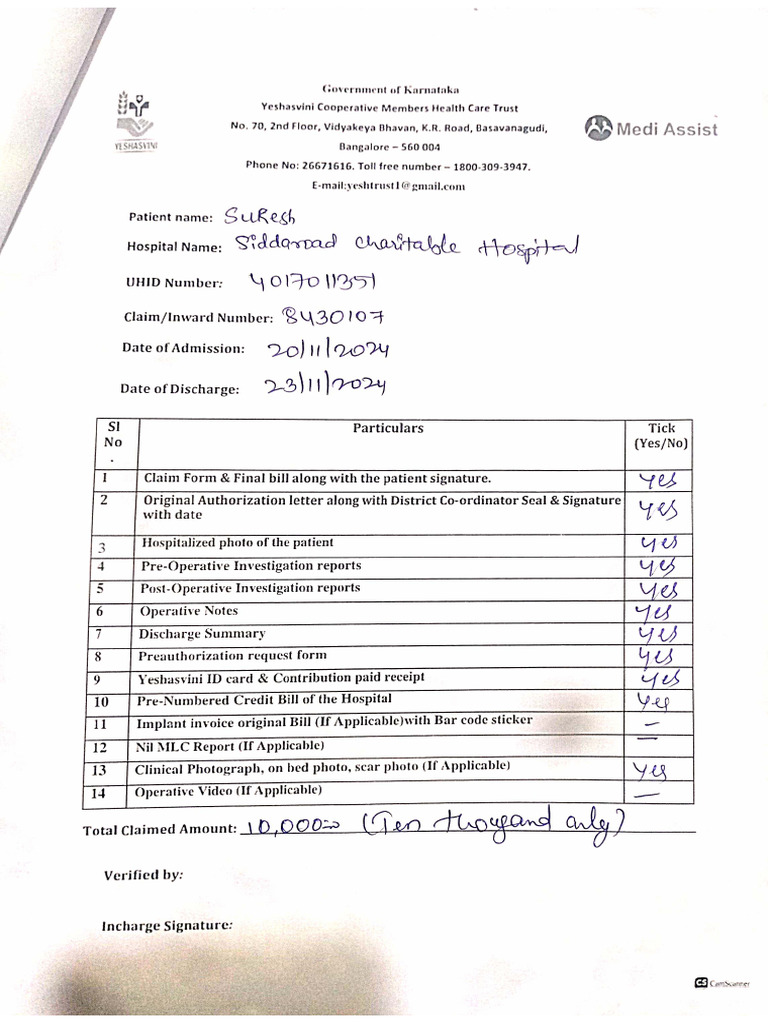 Government of Karnataka
Yeshasvini Cooperative Members Health Care Trust
No. 70, 2nd Floor, Vidyakeya Bhavan, K.R. Road, Basavanagudi,
Bangalore – 560 004
Phone No: 26671616. Toll free number – 1800-309-3947.
E-mail:yeshtrust1@gmail.com
YESHASVINI
Medi Assist
Patient name: SuResh
Hospital Name: Siddaroad charitable Hospital
UHID Number: 4017011351
Claim/Inward Number: 8430107
Date of Admission: 20/11/2024
Date of Discharge: 23/11/2024
Sl No . Particulars Tick (Yes/No)
1 Claim Form & Final bill along with the patient signature. yes
2 Original Authorization letter along with District Co-ordinator Seal & Signature with date yes
3 Hospitalized photo of the patient yes
4 Pre-Operative Investigation reports yes
5 Post-Operative Investigation reports yes
6 Operative Notes yes
7 Discharge Summary yes
8 Preauthorization request form yes
9 Yeshasvini ID card & Contribution paid receipt yes
10 Pre-Numbered Credit Bill of the Hospital yes
11 Implant invoice original Bill (If Applicable)with Bar code sticker –
12 Nil MLC Report (If Applicable) –
13 Clinical Photograph, on bed photo, scar photo (If Applicable) yes
14 Operative Video (If Applicable) –
Total Claimed Amount: 10,000=00 (Ten thousand only)
Verified by:
Incharge Signature:
CS CamScanner